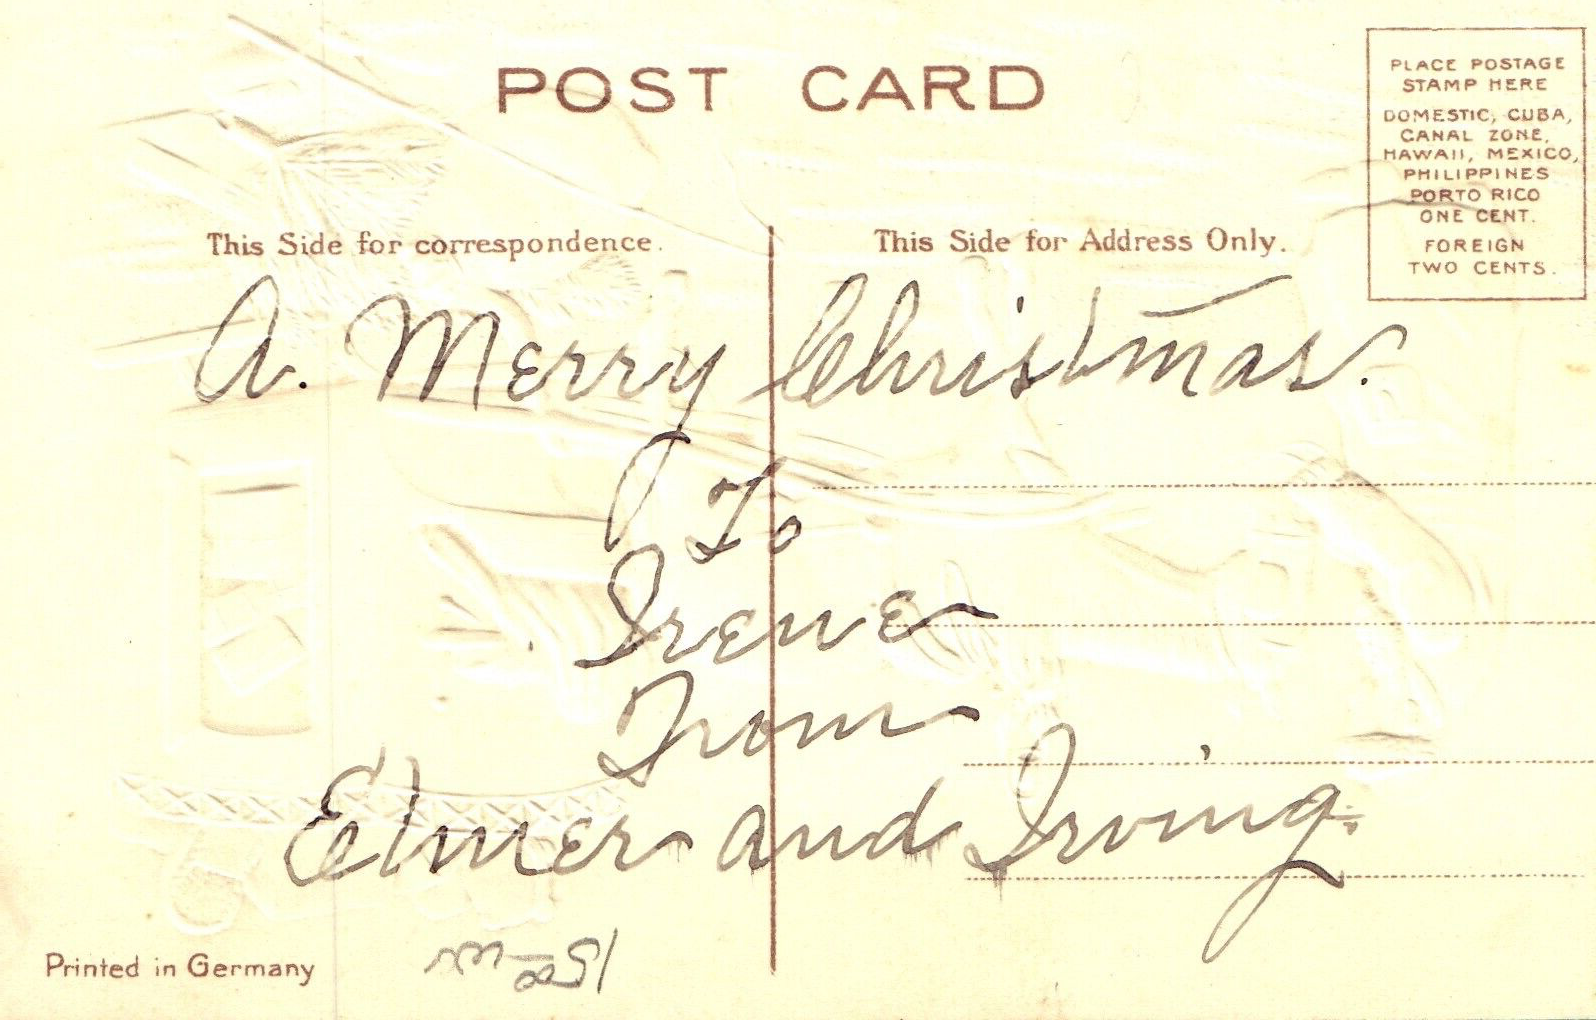 POST CARD
PLACE POSTAGE
STAMP HERE
DOMESTIC, CUBA,
CANAL ZONE,
HAWAII, MEXICO,
PHILIPPINES
PORTO RICO
ONE CENT.
FOREIGN
TWO CENTS.
This Side for correspondence.
This Side for Address Only.
A. Merry Christmas.
To
Irene
From
Elmer and Irving.
Printed in Germany